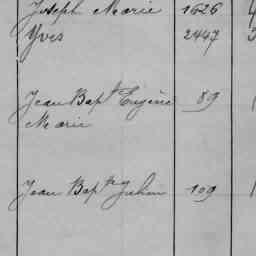 Joseph Marie 1626
Yves 2447
Jean Bapt Eugène 89
Marie
Jean Bapt Julien 109